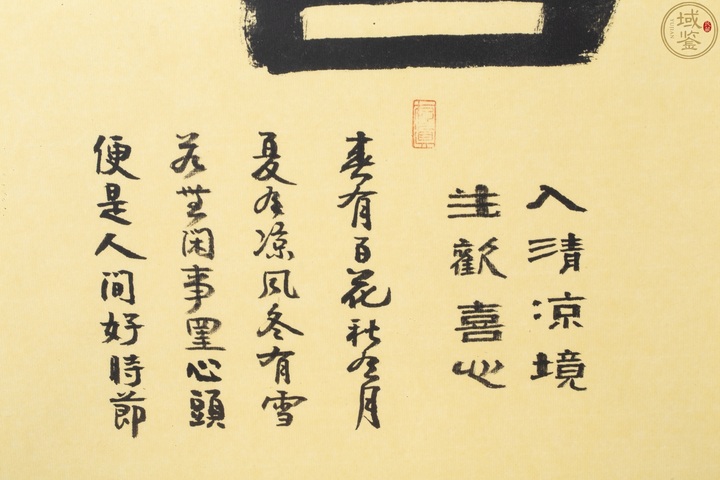 入清凉境
生歡喜心
春有百花秋有月
夏有凉風冬有雪
若無閑事罣心頭
便是人間好時節
域鉴